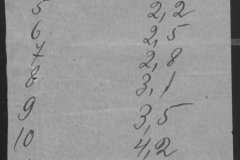 5 2,2
6 2,5
7 2,8
8 3,1
9 3,5
10 4,2